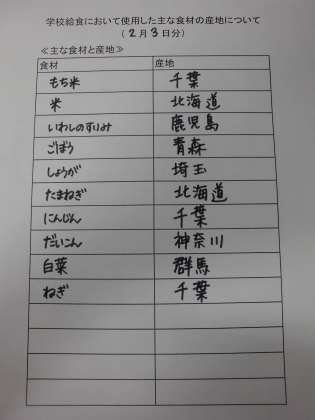 学校給食において使用した主な食材の産地について
（ 2 月 3 日分）
≪主な食材と産地≫
食材 産地
もち米 千葉
米 北海道
いわしのすりみ 鹿児島
ごぼう 青森
しょうが 埼玉
たまねぎ 北海道
にんじん 千葉
だいこん 神奈川
白菜 群馬
ねぎ 千葉